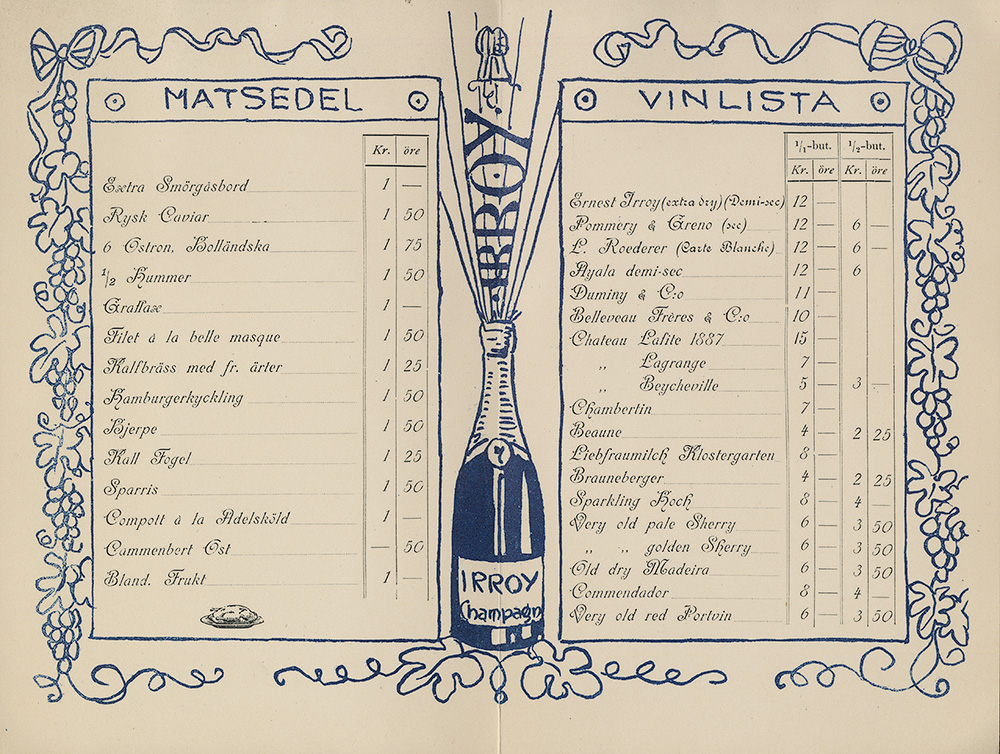 MATSEDEL
Kr. öre
Extra Smörgåsbord 1 —
Rysk Caviar 1 50
6 Ostron, Holländska 1 75
1/2 Hummer 1 50
Graflax 1 —
Filet à la belle masque 1 50
Kalfbräss med fr. ärter 1 25
Hamburgerkyckling 1 50
Hjerpe 1 50
Kall Fogel 1 25
Sparris 1 50
Compott à la Adelsköld 1 —
Cammenbert Ost — 50
Bland. Frukt 1 —
IRROY
IRROY
Champagn
VINLISTA
1/1-but. 1/2-but.
Kr. öre Kr. öre
Ernest Irroy (extra dry) (Demi-sec) 12 —
Pommery & Greno (sec) 12 — 6 —
L. Roederer (Carte Blanche) 12 — 6 —
Ayala demi-sec 12 — 6
Duminy & C:o 11 —
Belleveau Frères & C:o 10 —
Chateau Lafite 1887 15 —
„ Lagrange 7 —
„ Beycheville 5 — 3 —
Chambertin 7 —
Beaune 4 — 2 25
Liebfraumilch Klostergarten 8 —
Brauneberger 4 — 2 25
Sparkling Hock 8 — 4 —
Very old pale Sherry 6 — 3 50
„ „ golden Sherry 6 — 3 50
Old dry Madeira 6 — 3 50
Commendador 8 — 4 —
Very old red Portvin 6 — 3 50